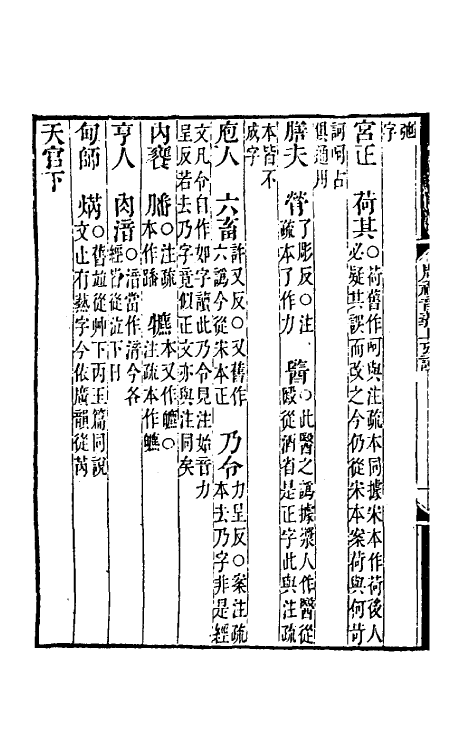 弛
字
宮正　荷其○荷舊作呵與注疏本同據宋本作荷後人
必疑其誤而改之今仍從宋本案荷與何苛
訶呵占
俱通用
膳夫　膋了彫反○注
疏本了作力　醫○此醫之譌據漿人作醫從
殹從酒省是正字此與注疏
本皆不
成字
庖人　六畜許又反○又舊作
六譌今從宋本正　乃令力呈反○案注疏
本去乃字非是經
文凡令自作如字讀此乃令見注始音力
呈反若去乃字竟似正文亦與注同矣
內饔　膰○注疏
本作燔　軉本又作軉○
注疏本作軉
亨人　肉湆○湆當作湆今各
經皆從泣下日
甸師　焫○舊譌從艸下丙玉篇同說
文止有爇字今依廣韻從芮
天官下